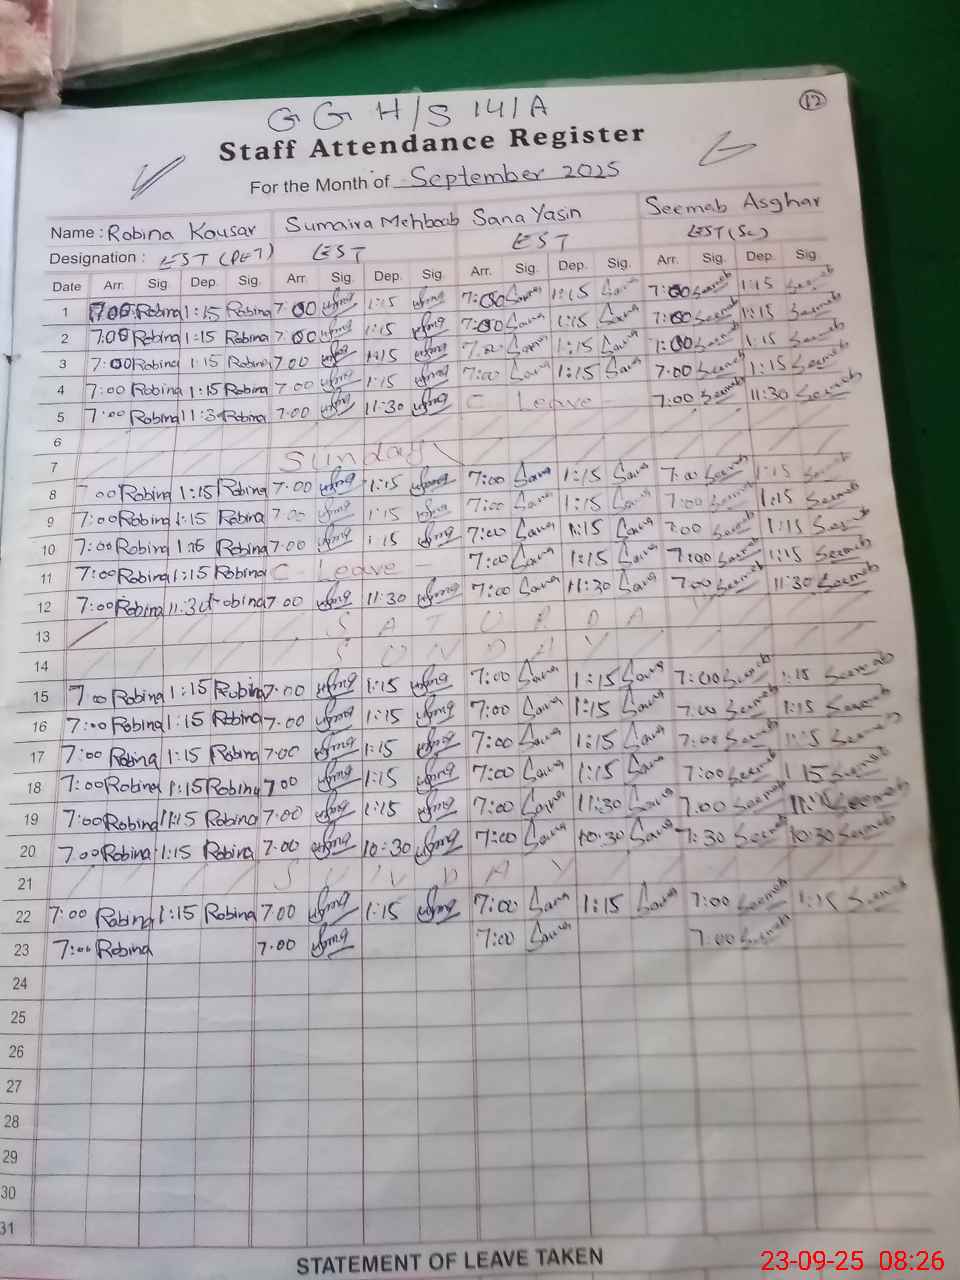 12
G G H/S 141/A
Staff Attendance Register
For the Month of September 2025
Name : Robina Kousar Sumaira Mehboob Sana Yasin Seemab Asghar
Designation : EST (PET) EST EST EST (Sc)
Date Arr. Sig. Dep. Sig. Arr. Sig. Dep. Sig. Arr. Sig. Dep. Sig. Arr. Sig. Dep. Sig.
1 7:00 Robina 1:15 Robina 7:00 1:15 7:00 Sana 1:15 Sana 7:00 Seemab 1:15 Seemab
2 7:00 Robina 1:15 Robina 7:00 1:15 7:00 Sana 1:15 Sana 7:00 Seemab 1:15 Seemab
3 7:00 Robina 1:15 Robina 7:00 1:15 7:00 Sana 1:15 Sana 7:00 Seemab 1:15 Seemab
4 7:00 Robina 1:15 Robina 7:00 1:15 7:00 Sana 1:15 Sana 7:00 Seemab 1:15 Seemab
5 7:00 Robina 11:30 Robina 7:00 11:30 C - Leave - 7:00 Seemab 11:30 Seemab
6
7 Sunday
8 7:00 Robina 1:15 Robina 7:00 1:15 7:00 Sana 1:15 Sana 7:00 Seemab 1:15 Seemab
9 7:00 Robina 1:15 Robina 7:00 1:15 7:00 Sana 1:15 Sana 7:00 Seemab 1:15 Seemab
10 7:00 Robina 1:15 Robina 7:00 1:15 7:00 Sana 1:15 Sana 7:00 Seemab 1:15 Seemab
11 7:00 Robina 1:15 Robina C - Leave - 7:00 Sana 1:15 Sana 7:00 Seemab 1:15 Seemab
12 7:00 Robina 11:30 Robina 7:00 11:30 7:00 Sana 11:30 Sana 7:00 Seemab 11:30 Seemab
13 S A T U R D A Y
14 S U N D A Y
15 7:00 Robina 1:15 Robina 7:00 1:15 7:00 Sana 1:15 Sana 7:00 Seemab 1:15 Seemab
16 7:00 Robina 1:15 Robina 7:00 1:15 7:00 Sana 1:15 Sana 7:00 Seemab 1:15 Seemab
17 7:00 Robina 1:15 Robina 7:00 1:15 7:00 Sana 1:15 Sana 7:00 Seemab 1:15 Seemab
18 7:00 Robina 1:15 Robina 7:00 1:15 7:00 Sana 1:15 Sana 7:00 Seemab 1:15 Seemab
19 7:00 Robina 11:15 Robina 7:00 1:15 7:00 Sana 11:30 Sana 7:00 Seemab Seemab
20 7:00 Robina 1:15 Robina 7:00 10:30 7:00 Sana 10:30 Sana 7:30 Seemab 10:30 Seemab
21 S U N D A Y
22 7:00 Robina 1:15 Robina 7:00 1:15 7:00 Sana 1:15 Sana 7:00 Seemab 1:15 Seemab
23 7:00 Robina 7:00 7:00 Sana 7:00 Seemab
24
25
26
27
28
29
30
31
STATEMENT OF LEAVE TAKEN
23-09-25 08:26